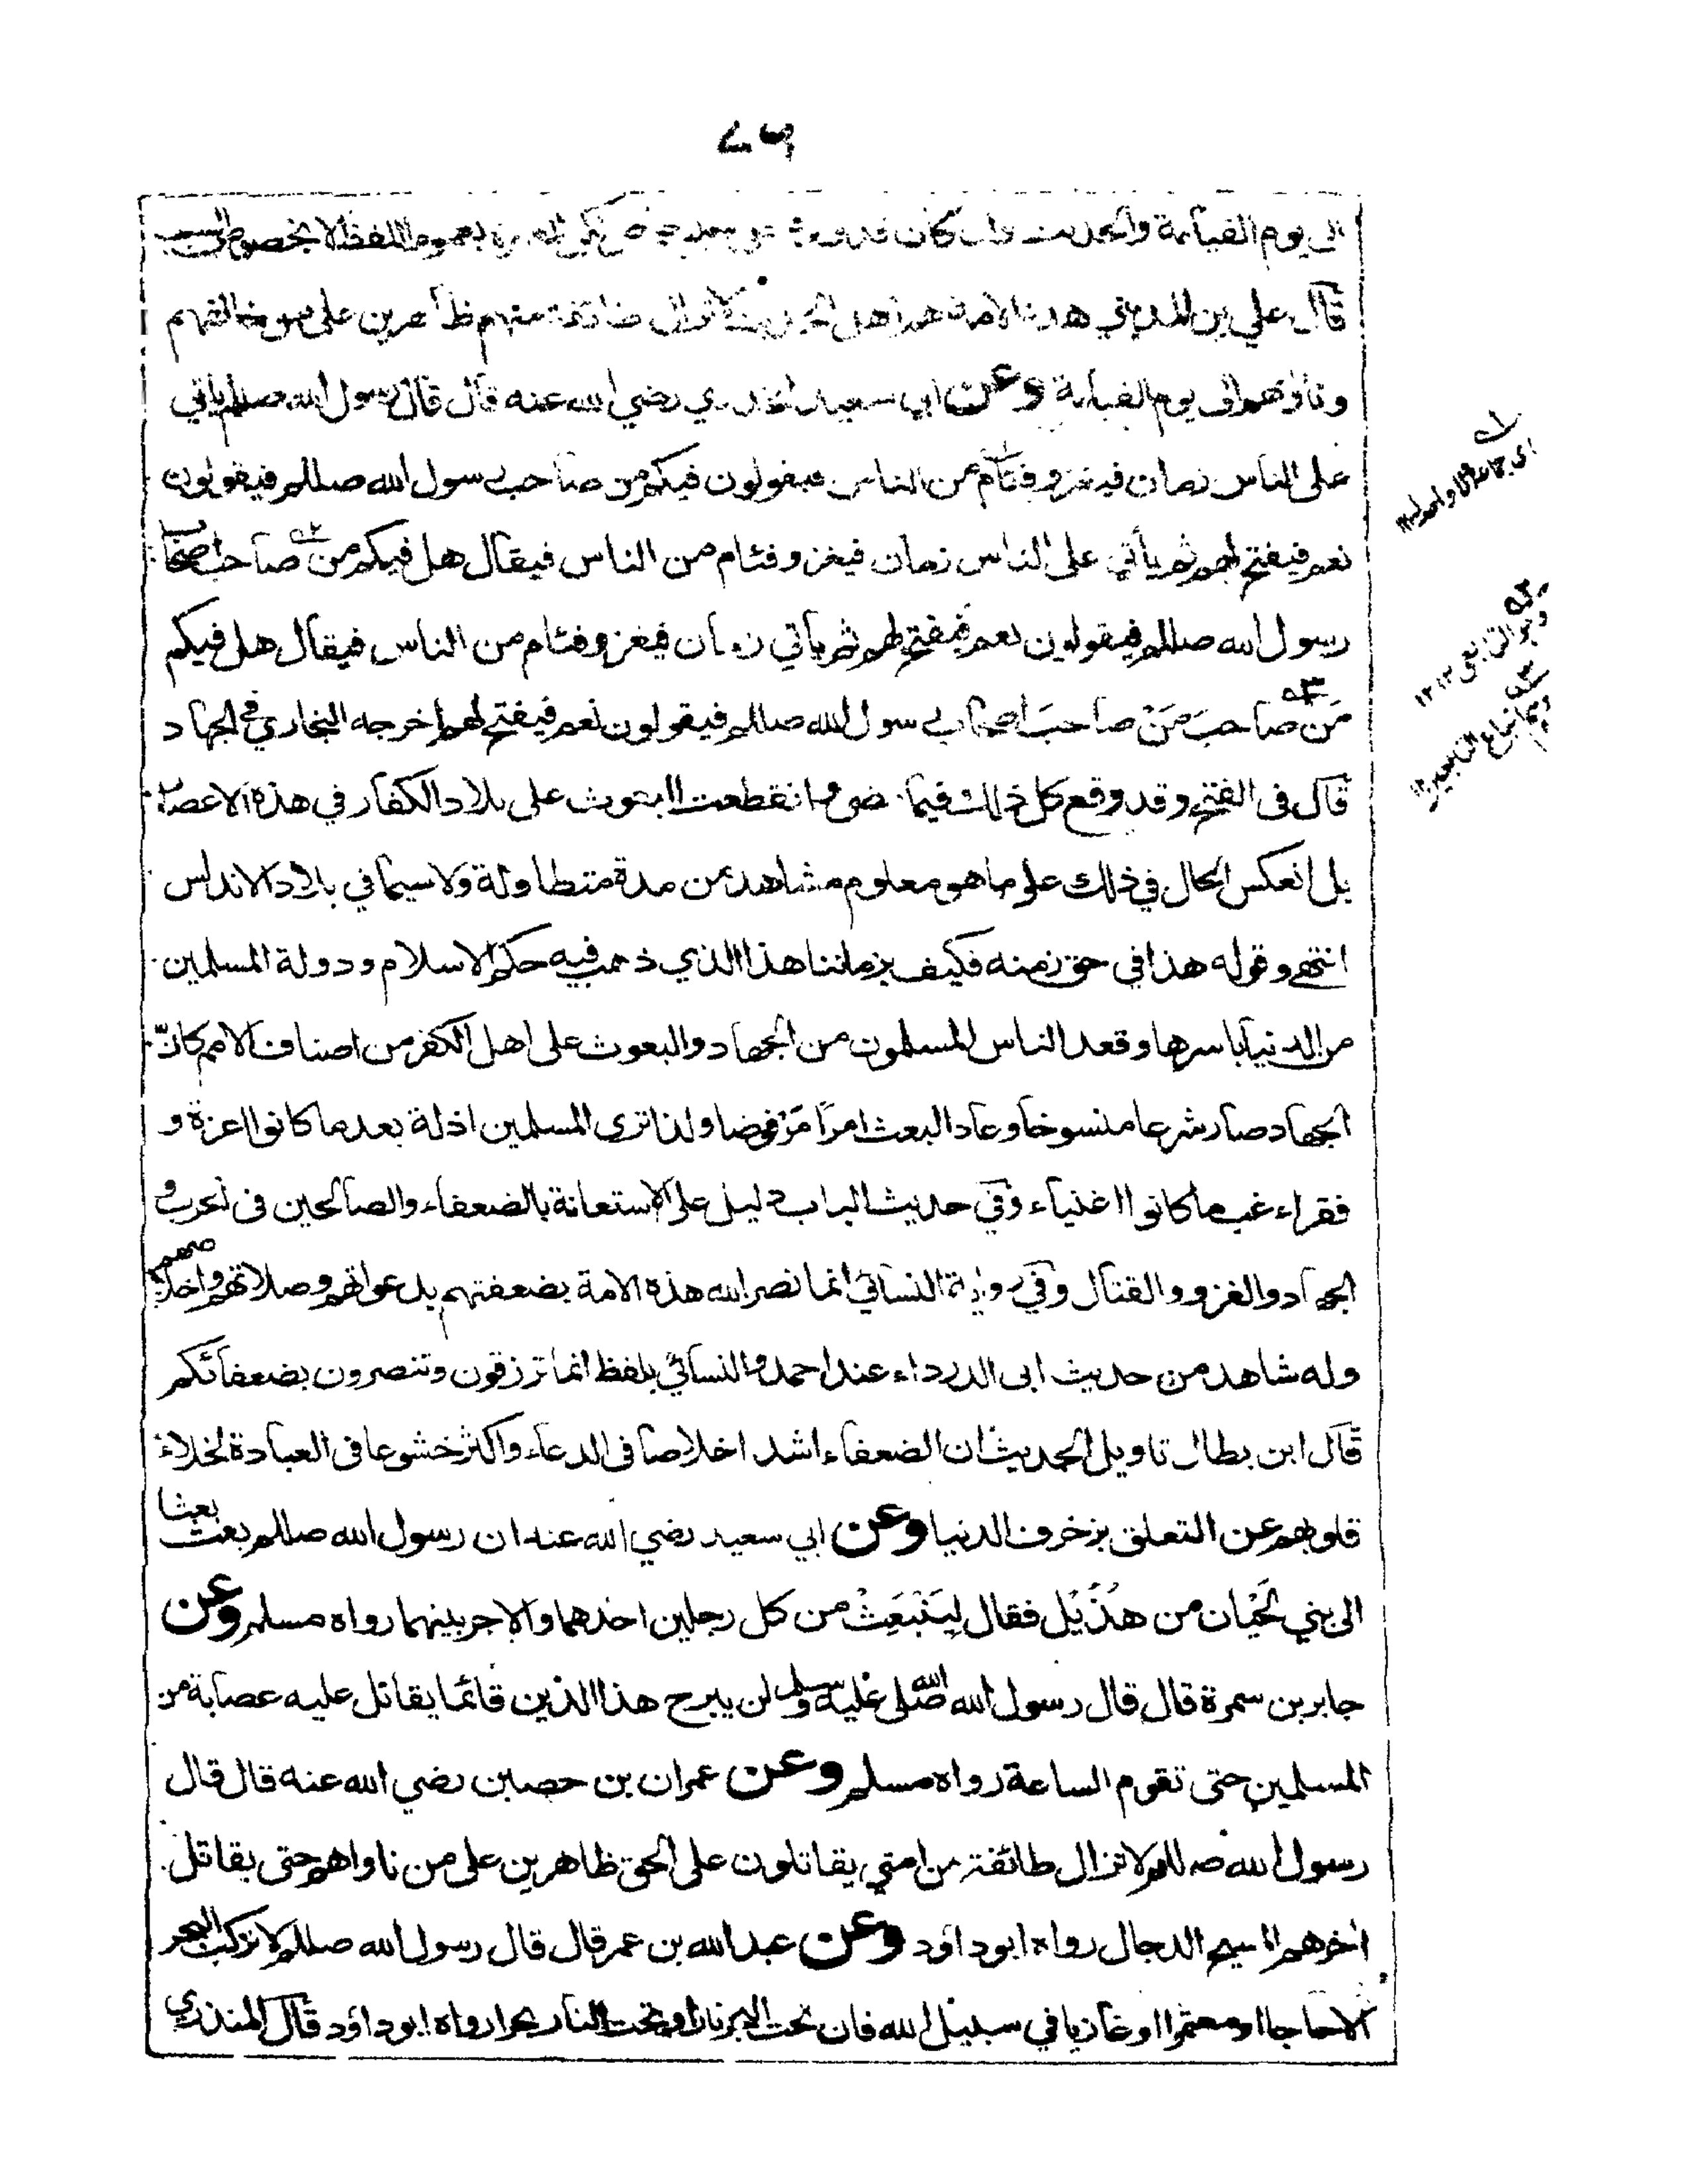 ٤٩
الى يوم القيامة والحديث وان كان بعموم اللفظ لا بخصوص السبب
قال علي بن المديني هذه الامة هم اهل طائفة منهم ظاهرين على من خالفهم
وناواهم الى يوم القيامة وعن ابي سعيد الخدري رضي الله عنه قال قال رسول الله صللم ياتي
على الناس زمان فيغزو فئام من الناس فيقولون فيكم من صاحب رسول الله صللم فيقولون
نعم فيفتح لهم ثم يأتي على الناس زمان فيغزو فئام من الناس فيقال هل فيكم من صاحب اصحاب
رسول الله صللم فيقولون نعم فيفتح لهم ثم ياتي زمان فيغزو فئام من الناس فيقال هل فيكم
مَن صاحبَ مَنْ صاحبَ اصحاب رسول الله صللم فيقولون نعم فيفتح لهم اخرجه البخاري في الجهاد
قال فى الفتح وقد وقع كل ذلك فيما مضى وانقطعت البعوث على بلاد الكفار في هذه الاعصار
بل انعكس الحال في ذلك على ما هو معلوم مشاهد من مدة متطاولة ولا سيما في بلاد الاندلس
انتهى وقوله هذا في حق زمنه فكيف بزماننا هذا الذي ذهب فيه حكم الاسلام ودولة المسلمين
من الدنيا باسرها وقعد الناس المسلمون من الجهاد والبعوث على اهل الكفر من اصناف الامم كانّ
الجهاد صار شرعا منسوخا وعاد البعث امرًا مرفوضا ولذا ترى المسلمين اذلة بعد ما كانوا اعزة و
فقراء غب ما كانوا اغنياء وفي حديث الباب دليل على الاستعانة بالضعفاء والصالحين فى الحرب و
الجهاد والغزو والقتال وفي رواية النسائي انما نصر الله هذه الامة بضعفتهم بدعواتهم وصلاتهم واخلاصهم
وله شاهد من حديث ابى الدرداء عند احمد والنسائي بلفظ انما ترزقون وتنصرون بضعفائكم
قال ابن بطال تاويل الحديث ان الضعفاء اشد اخلاصا فى الدعاء واكثر خشوعا فى العبادة لخلاء
قلوبهم عن التعلق بزخرف الدنيا وعن ابي سعيد رضي الله عنه ان رسول الله صللم بعث بعثا
الى بني لَحْيان من هُذَيْل فقال لِيَنْبَعِثْ من كل رجلين احدهما والاجر بينهما رواه مسلم وعن
جابر بن سمرة قال قال رسول الله صلى الله عليه وسلم لن يبرح هذا الدين قائما يقاتل عليه عصابة من
المسلمين حتى تقوم الساعة رواه مسلم وعن عمران بن حصين رضي الله عنه قال قال
رسول الله صللم لا تزال طائفة من امتي يقاتلون على الحق ظاهرين على من ناواهم حتى يقاتل
اخرهم المسيح الدجال رواه ابو داؤد وعن عبد الله بن عمر قال قال رسول الله صللم لا تركب البحر
الا حاجا او معتمرا او غازيا في سبيل الله فان تحت البحر نارا وتحت النار بحرا رواه ابو داؤد قال المنذري